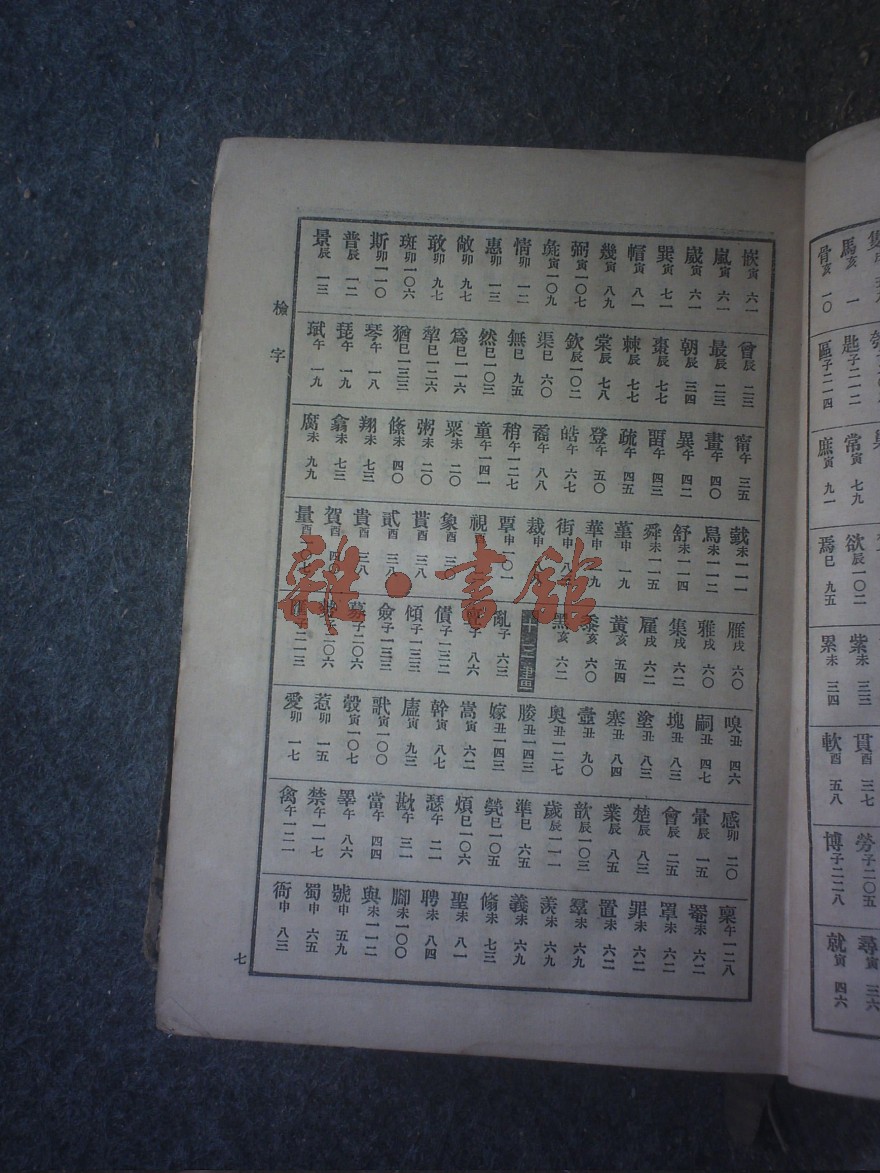 嵌寅六一
嵐寅六一
崴寅六一
巽寅七一
帽寅八一
幾寅八九
彘寅一〇九
弼寅一〇七
情卯一二
惠卯一三
敞卯九七
敢卯九七
斑卯一〇六
斯卯一一〇
普辰一二
景辰一三
曾辰二三
最辰二三
朝辰三四
棗辰七七
棘辰七七
棠辰七八
欽辰一〇二
渠巳六〇
無巳九五
然巳一〇三
爲巳一一六
犂巳一二六
猶巳一三三
琴午一八
琵午一九
琺午一九
甯午三五
畫午四〇
異午四二
畱午四三
疏午四五
登午五〇
皓午六七
矞午八八
稍午一二七
童午一四一
粟未二〇
粥未二〇
絛未四〇
翔未七三
翕未七三
腐未九九
戠未一一一
舄未一一二
舒未一一四
舜未一一五
菫申一九
華申一九
街申八三
裁申
覃申一〇一
視酉
象酉
貰酉三八
貮酉三八
貴酉三八
賀酉四〇
量酉一〇七
雁戌六〇
雅戌六〇
集戌六二
雇戌六二
黃亥五四
黍亥六〇
黑亥六二
十三畫
亂子六三
子八六
債子一三二
傾子一三三
僉子一三三
募子二〇六
子二〇六
匯子二一三
嗅丑四六
嗣丑四七
塊丑八三
塗丑八三
塞丑八四
壼丑九〇
奧丑一二七
媵丑一四三
嫁丑一四三
嵩寅六二
幹寅八七
廬寅九三
歌寅一〇〇
彀寅一〇七
惹卯一五
愛卯一七
感卯二〇
暈辰一五
會辰二五
楚辰八三
業辰八五
歆辰一〇三
歲辰一一一
準巳六五
煢巳一〇五
煩巳一〇六
瑟午二一
尠午三一
當午四四
睪午八六
禁午一一七
禽午一二一
稟午一二八
罨未六二
罩未六二
罪未六二
置未六二
羣未六九
羨未六九
義未六九
翛未七三
聖未八一
聘未八四
腳未一〇〇
與未一一二
號申五九
蜀申六五
衙申八三
檢字
七
雜·書館
隻戌五八
馬亥一
骨亥一〇
匙子二一二
區子二一四
常寅七九
庶寅九一
欲辰一〇二
焉巳九五
紫未三三
累未三四
貫酉三七
軟酉五八
勞子二〇五
博子二二八
尋寅三六
就寅四六